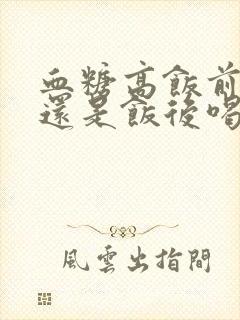 血糖高飯前
還是飯後喝
風雲出指間